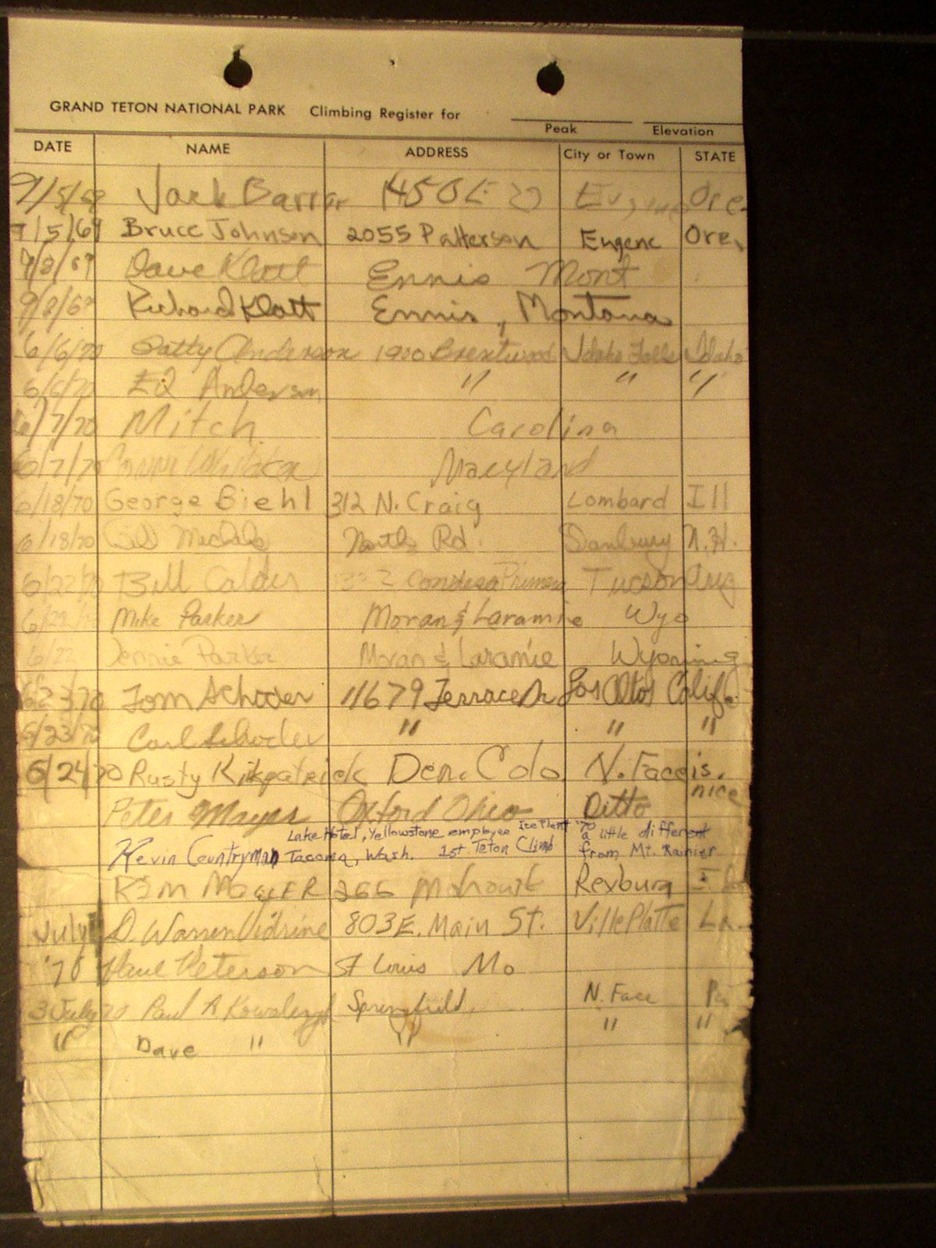 GRAND TETON NATIONAL PARK Climbing Register for
Peak Elevation
DATE NAME ADDRESS City or Town STATE
Jack 450 E Ore.
9/5/69 Bruce Johnson 2055 Patterson Eugene Ore.
9/8/69 Dave Klatt Ennis Mont
9/8/69 Richard Klatt Ennis, Montana
6/6/70 Patty Anderson 1900 Brentwood Idaho Falls Idaho
6/6/70 Ed Anderson " " "
6/7/70 Mitch Carolina
6/7/70 Maryland
6/18/70 George Biehl 312 N. Craig Lombard Ill
6/18/70 North Rd. Danbury N.H.
6/22/70 Bill Calder Condesa Primera Tucson Ariz
Mike Parker Moran & Laramie Wyo
6/22 Jennie Parker Moran & Laramie Wyoming
6/23/70 Tom Schoder 11679 Terrace Dr Los Altos Calif.
6/23/70 Carl Schoder " " "
6/24/70 Rusty Kirkpatrick Den. Colo. N. Face is nice
Peter Mayer Oxford Ohio Ditto
Lake Hotel, Yellowstone employee Ice Plant '70 a little different
Kevin Countryman Tacoma, Wash. 1st Teton Climb from Mt. Rainier
366 Rexburg
July D. Warren Vidrine 803 E. Main St. Ville Platte La.
'70 Paul Peterson St Louis Mo
3 July 70 Paul A Springfield, N. Face Pa
" Dave " " " "